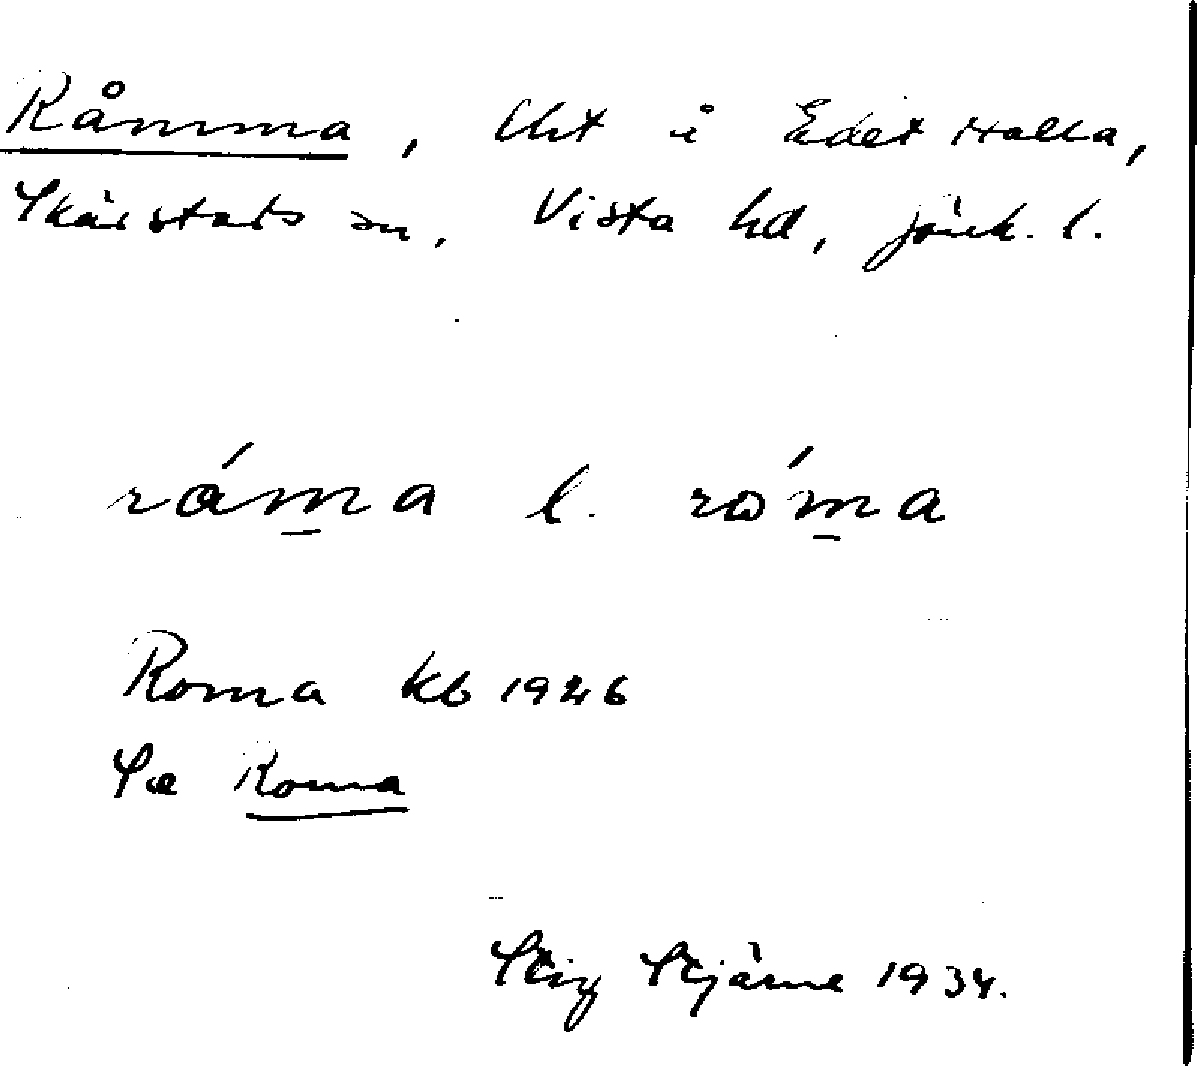 Råmma, lht i Edet Halla,
Skärstads sn, Vista hd, Jönk. l.
ráma l. róma
Roma kb 1926
Se Roma
Stig Stjärne 1934.